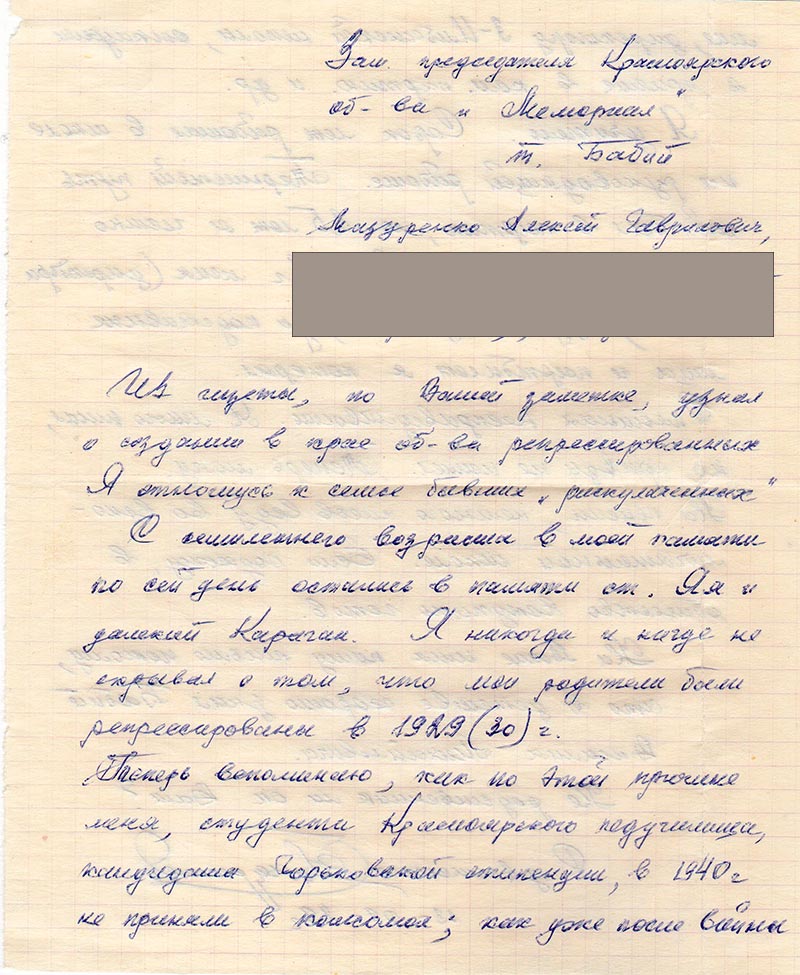 Зам. председателя Красноярского
об-ва „Мемориал"
т. Бабий
Мазуренко Алексей Гаврилович,
Из газеты, по Вашей заметке, узнал
о создании в крае об-ва репрессированных
Я отношусь к семье бывших „раскулаченных"
С семилетнего возраста в моей памяти
по сей день остались в памяти ст. Яя и
далекий Каргач. Я никогда и нигде не
скрывал о том, что мои родители были
репрессированы в 1929 (30) г.
Теперь вспоминаю, как по этой причине
меня, студента Красноярского педучилища,
кандидата Горьковской стипендии, в 1940 г
не приняли в комсомол; как уже после войны